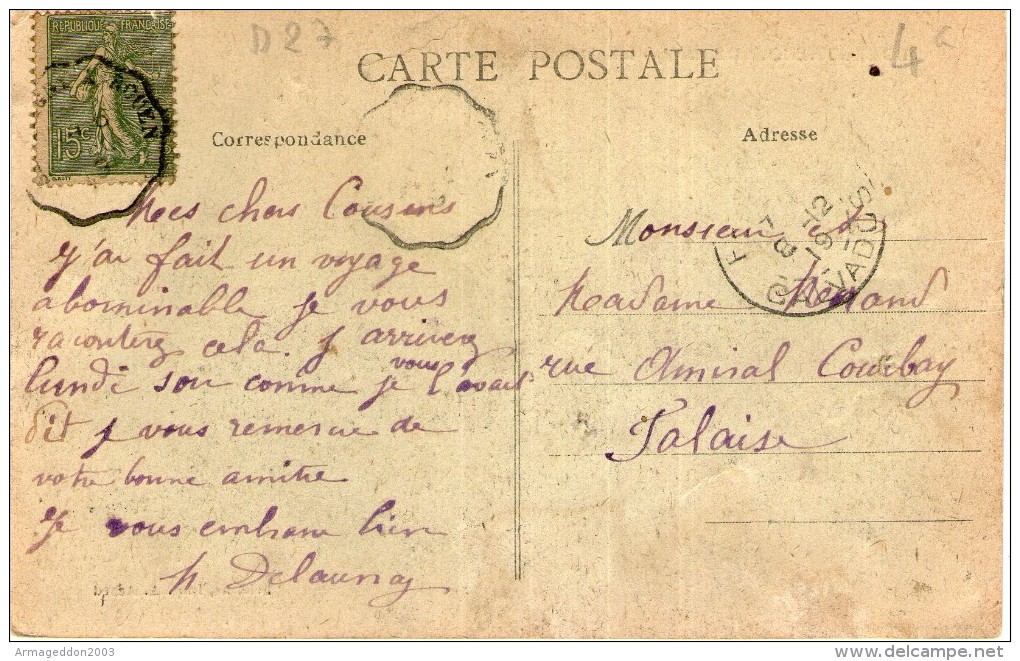 D27
4
REPUBLIQUE FRANÇAISE
15c
ROUEN
CARTE POSTALE
Correspondance
Adresse
Mes chers Cousins
j'ai fait un voyage
abominable je vous
raconterez cela. j arriverez
lundi soir comme je vous l'avait
dit je vous remercie de
votre bonne amitié
Je vous embrasse bien
Delaunay
Monsieur et
Madame
rue Amiral Courbay
Falaise
8 -12
19
CALVADOS
Armageddon2003
delcampe.net